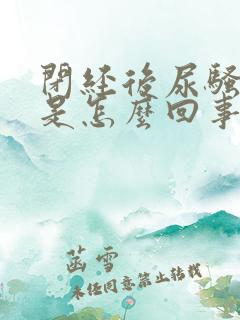 閉经後尿騷
是怎麼回事
菡雪
未经同意禁止转载